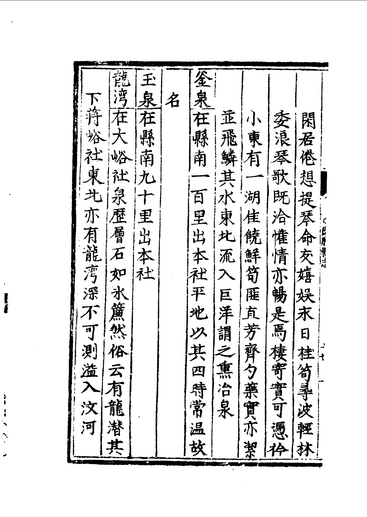 閑居倦想提琴命友嬉娱永日桂筍尋波輕林
委浪琴歌既洽懽情亦暢是焉棲寄實可憑衿
小東有一湖佳饒鮮筍匪直芳齊勺藥實亦潔
並飛鱗其水東北流入巨洋謂之熏冶泉
釜泉在縣南一百里出本社平地以其四時常温故
名
玉泉在縣南九十里出本社
龍灣在大峪社泉歷層石如水簾然俗云有龍潛其
下蔣峪社東北亦有龍灣深不可測溢入汶河